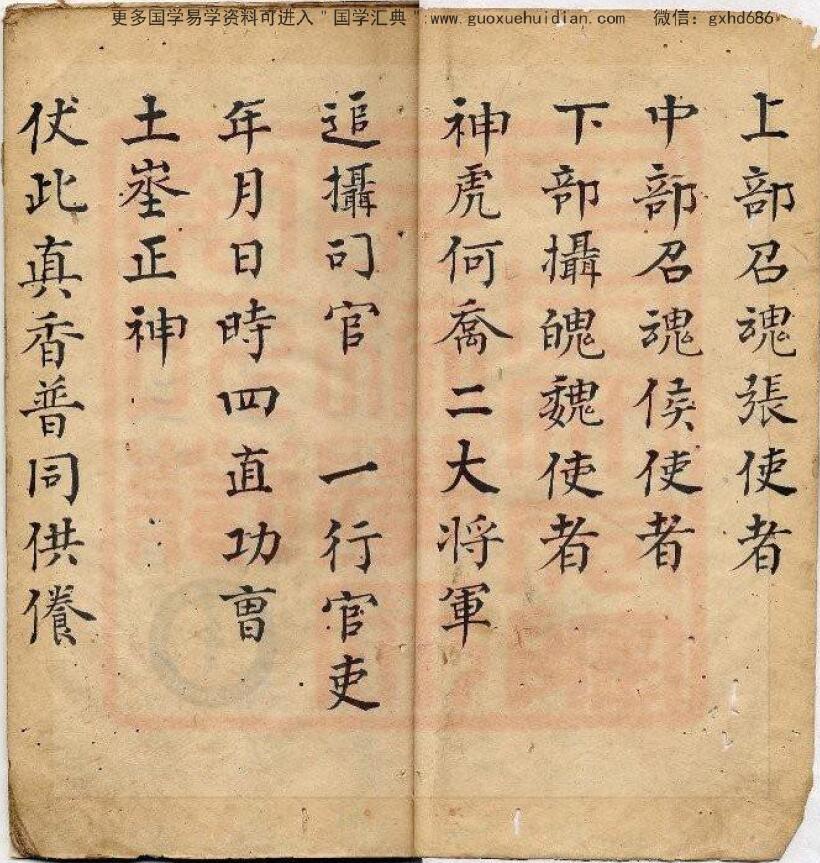 更多国学易学资料可进入"国学汇典"：www.guoxuehuidian.com 微信：gxhd686
上部召魂張使者
中部召魂侯使者
下部攝魄魏使者
神虎何喬二大將軍
追攝司官 一行官吏
年月日時四直功曺
土埊正神
伏此真香普同供養